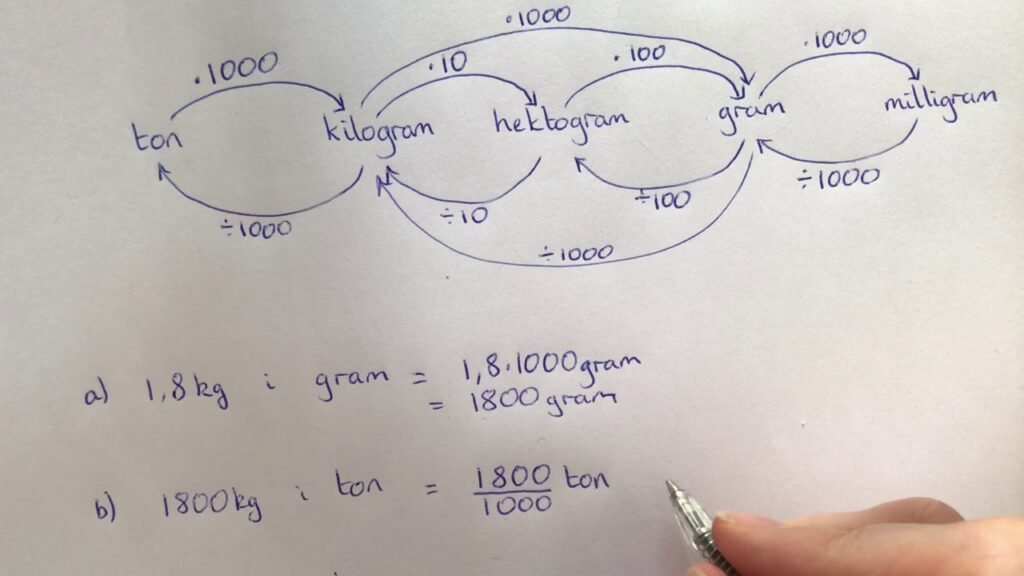 ·1000
·1000 ·10 ·100 ·1000
ton kilogram hektogram gram milligram
÷1000 ÷10 ÷100 ÷1000
÷1000
a) 1,8 kg i gram = 1,8·1000 gram
= 1800 gram
b) 1800 kg i ton = 1800/1000 ton